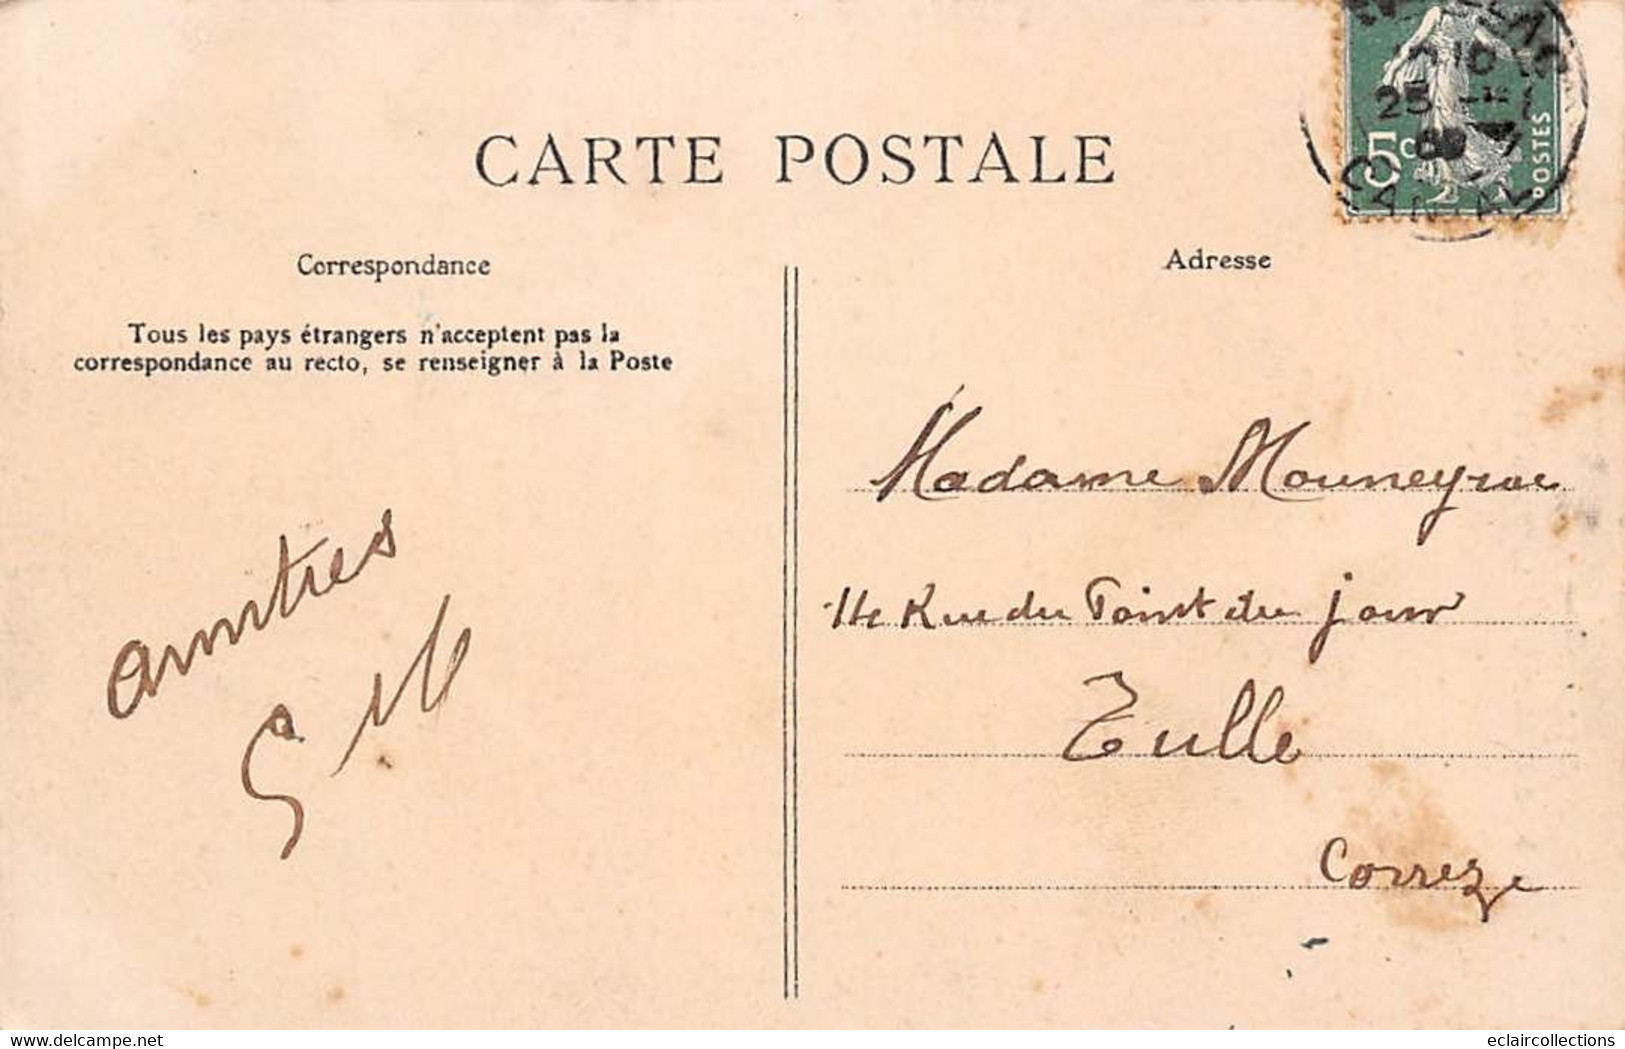 CARTE POSTALE
Correspondance
Adresse
Tous les pays étrangers n'acceptent pas la
correspondance au recto, se renseigner à la Poste
5c
POSTES
25
CANTAL
Madame Mouneyrac
14 Rue du Point du jour
Tulle
Correze
delcampe.net
eclaircollections